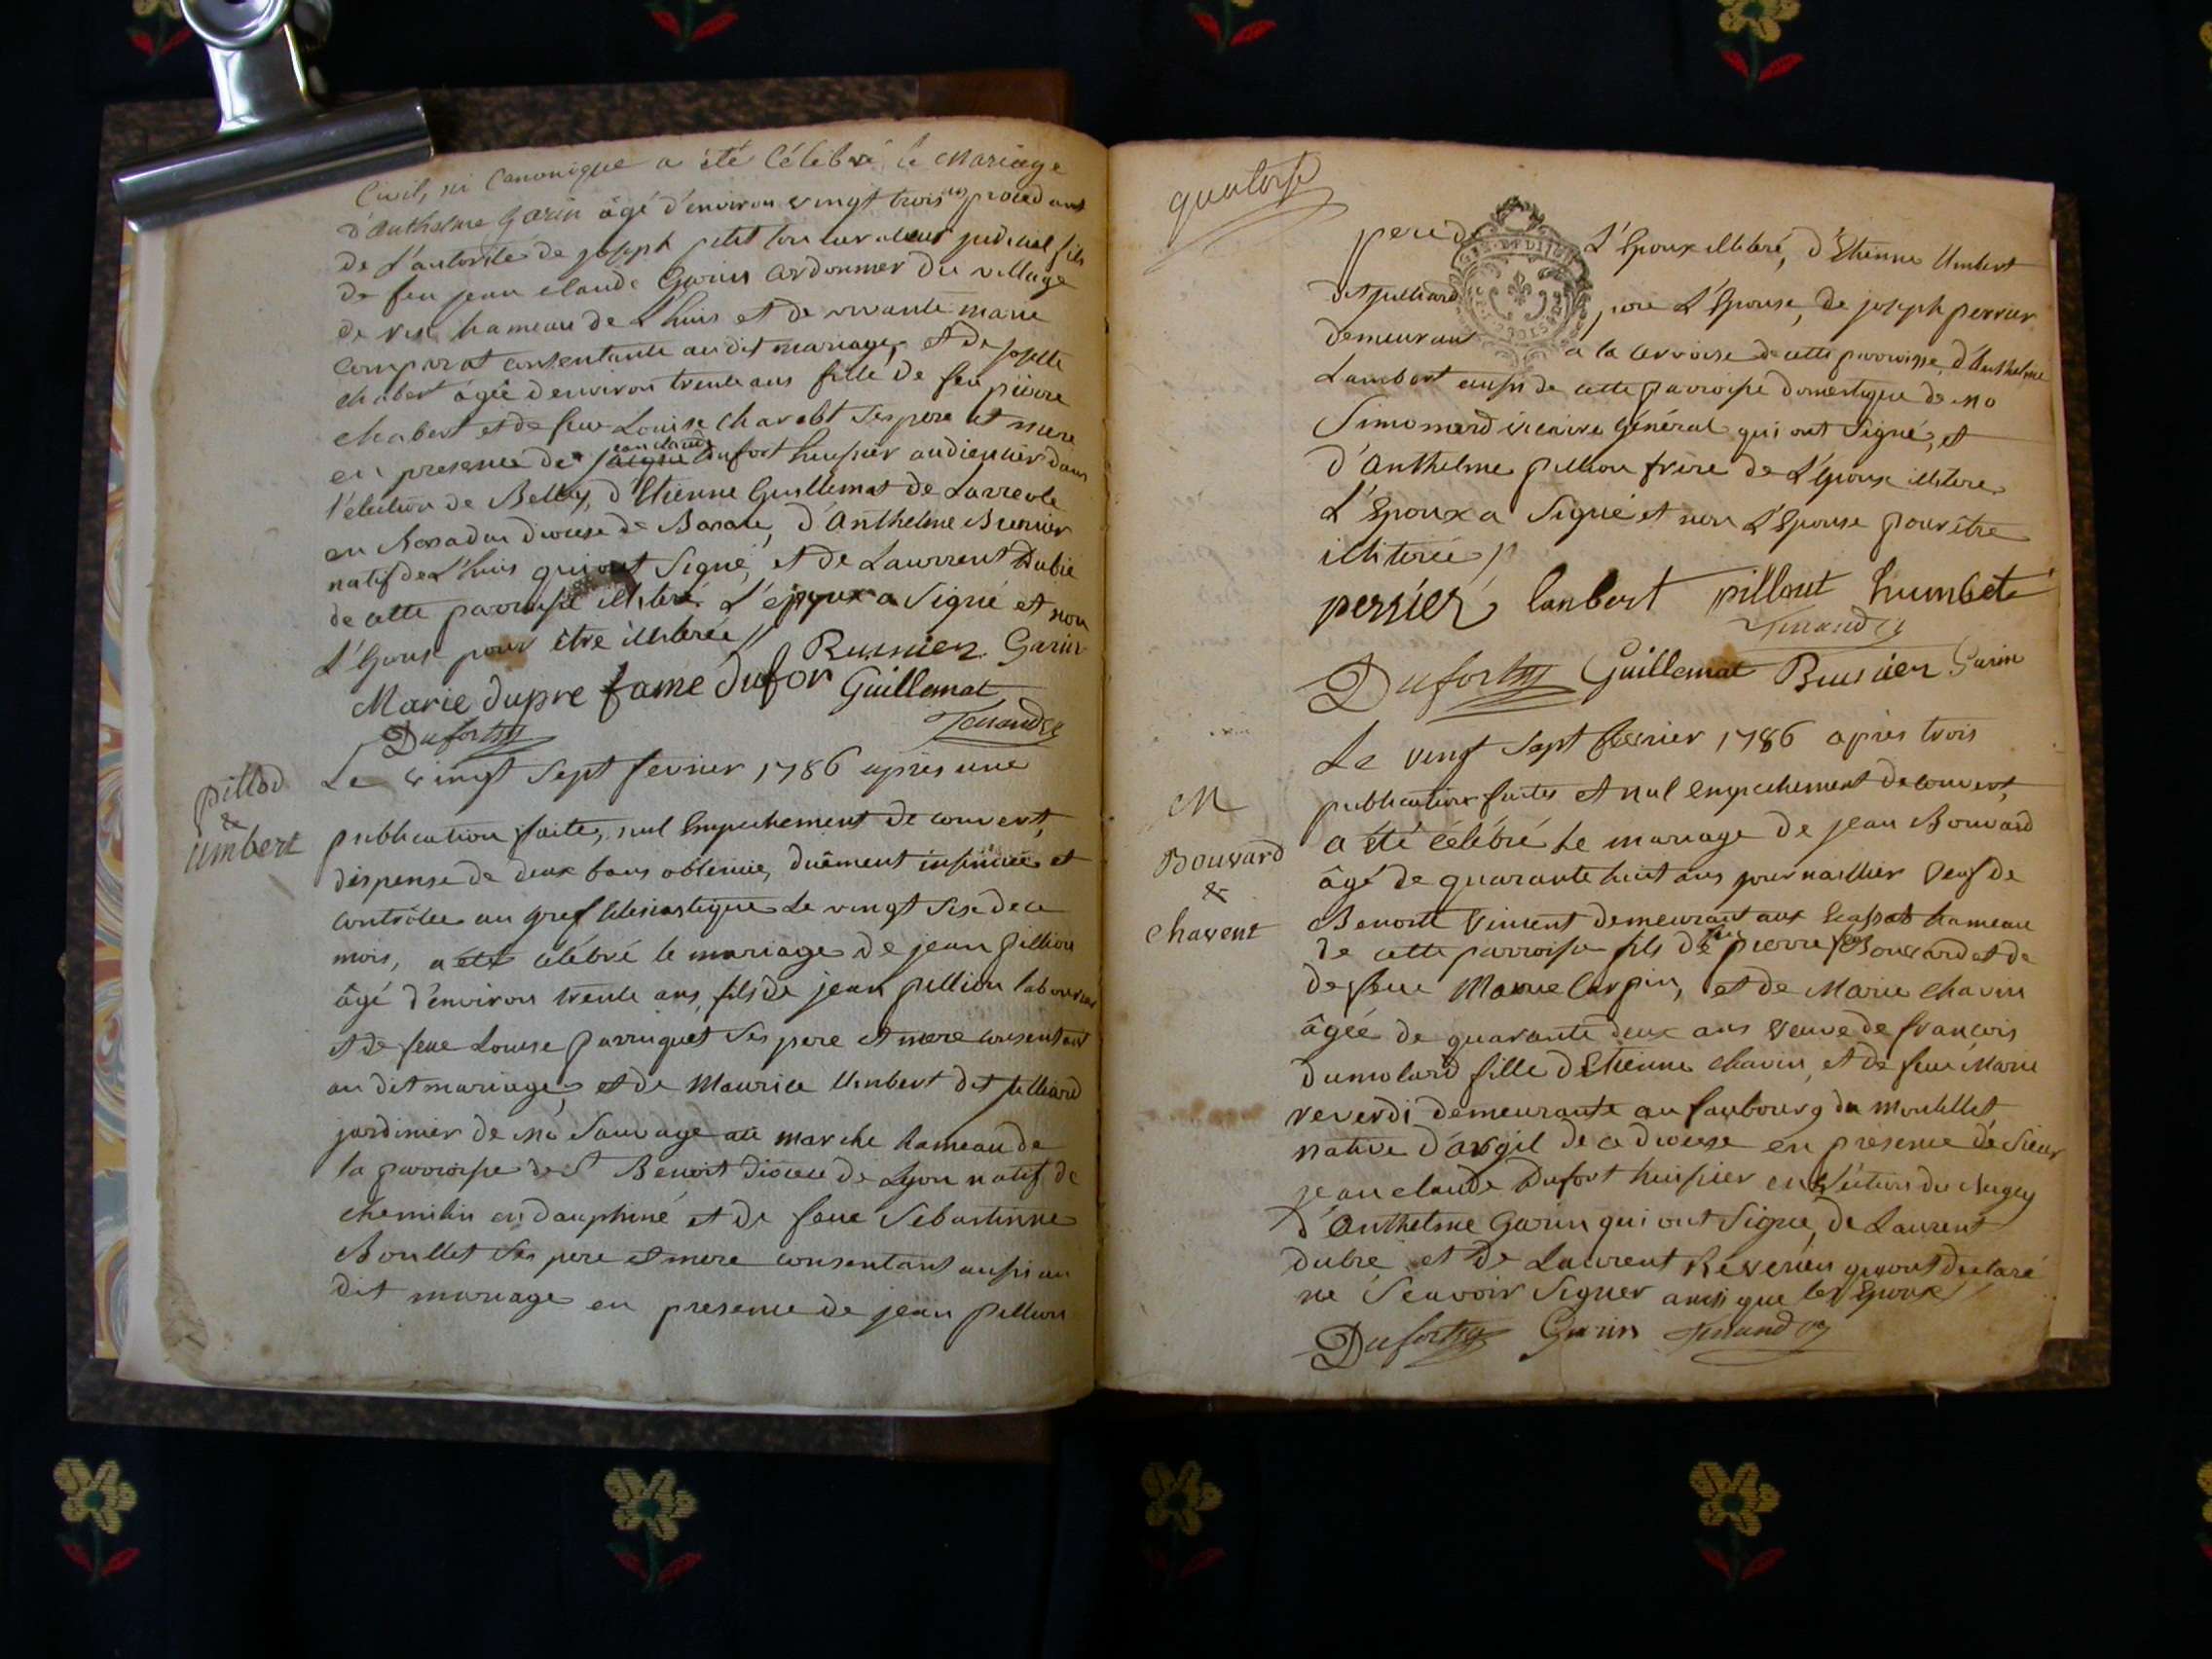 Civil, ni Canonique a été Célébré le Mariage
d'Anthelme Garin âgé d'environ vingt trois ans procedant
de l'autorité de joseph petit son curateur judiciel fils
de feu jean claude Garin Cordonnier du village
de hameau de L'huis et de vivante marie
comparat consentante au dit mariage, et de josette
chabert âgée d'environ trente ans fille de feu pierre
chabert et de feue Louise Ses pere et mere
en presence de jean claude Dufort huissier audiencier dans
l'élection de Belley, d'Etienne Guillemat de Larreole
en diocese de , d'Anthelme Burnier
natif de L'huis qui ont Signé, et de Laurrent Dubié
de cette parroisse illiteré. L'époux a Signé et non
L'Epouse pour être illiterée //
Burnier Garin
Marie dupre fame dufor Guillemat
Dufort
Le vingt Sept fevrier 1786 apres une
pillod
&
Umbert
publication faite, nul Empechement decouvert,
dispense de deux bans obtenue, duëment insinuée et
controlée au gref Eclesiastique Le vingt Six de ce
mois, a été célébré le mariage de jean pillion
âgé d'environ trente ans, fils de jean pillion laboureur
et de feue Louise parruquet Ses pere et mere consentant
au dit mariage, et de Maurice Umbert dit julliard
jardinier de Mr Sauvage au marche hameau de
la parroisse de St Benoit diocese de Lyon natif de
chemilin en dauphiné et de feue Sebastienne
Boullet Ses pere et mere consentant aussi au
dit mariage en presence de jean pillion
quatorse
pere de L'Epoux illiteré, d'Etienne Umbert
dit julliard L'Epouse, de joseph perrier
demeurant a la de cette parroisse, d'Anthelme
Lambert aussi de cette parroisse domestique de Mr
Simonard vicaire Général qui ont Signé, et
d'Anthelme pillion frère de L'époux illitere.
L'Epoux a Signé et non L'Epouse pour être
illiterée //
perrier lanbert pillout humbet
Dufort Guillemat Burnier Garin
Le vingt Sept fevrier 1786 après trois
M
Bouvard
&
Chavent
publications faites et nul empechement decouvert,
a été célébré le mariage de jean Bouvard
âgé de quarante huit ans journaillier veuf de
Benoite Vincent demeurant aux Ecassas hameau
de cette parroisse fils de feu pierre Bouvard et de
de feue Marie Carpin, et de Marie chavin
âgée de quarante deux ans veuve de françois
dumolard fille d'Etienne chavin, et de feue Marie
reverdi demeurante au faubourg du
native d'argil de ce diocese en presence de Sieur
jean claude Dufort huissier en L'élection du Bugey
d'Anthelme Garin qui ont Signé, de Laurent
dubié et de Laurent Revenien qui ont declaré
ne Scavoir Signer ainsi que les Epoux //
Dufort Garin